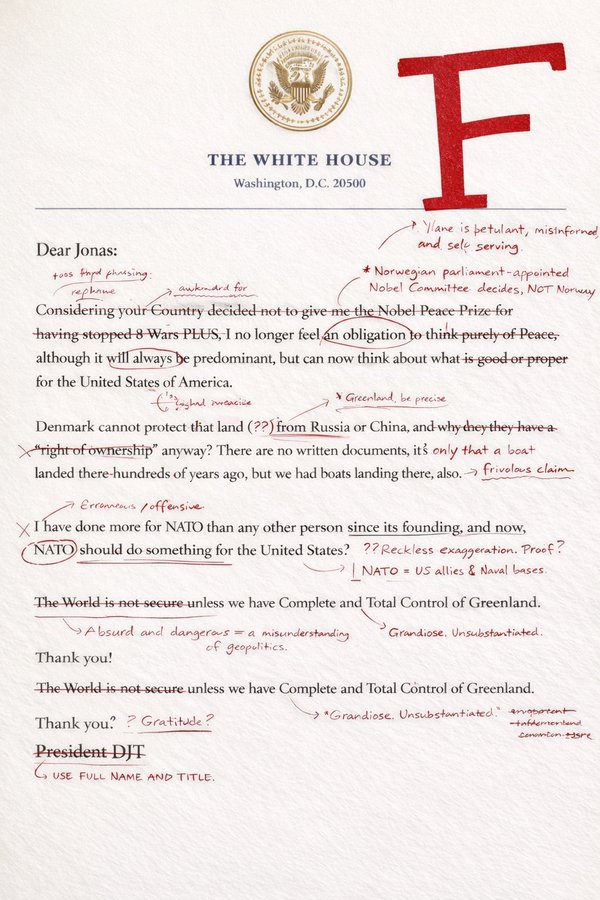 F
THE WHITE HOUSE
Washington, D.C. 20500
is petulant, misinformed,
and self serving.
Dear Jonas:
* Norwegian parliament-appointed
Nobel Committee decides, NOT Norway
phrasing.
rephrase
awkward for
Considering your Country decided not to give me the Nobel Peace Prize for
having stopped 8 Wars PLUS, I no longer feel an obligation to think purely of Peace,
although it will always be predominant, but can now think about what is good or proper
for the United States of America.
* Greenland, be precise
Denmark cannot protect that land (??) from Russia or China, and why they they have a
"right of ownership" anyway? There are no written documents, it's only that a boat
landed there hundreds of years ago, but we had boats landing there, also. → frivolous claim
Erroneous / offensive
X I have done more for NATO than any other person since its founding, and now,
NATO should do something for the United States? ?? Reckless exaggeration. Proof?
NATO = US allies & Naval bases.
The World is not secure unless we have Complete and Total Control of Greenland.
Absurd and dangerous = a misunderstanding
of geopolitics.
Grandiose. Unsubstantiated.
Thank you!
The World is not secure unless we have Complete and Total Control of Greenland.
*"Grandiose. Unsubstantiated."
Thank you? ? Gratitude?
President DJT
USE FULL NAME AND TITLE.